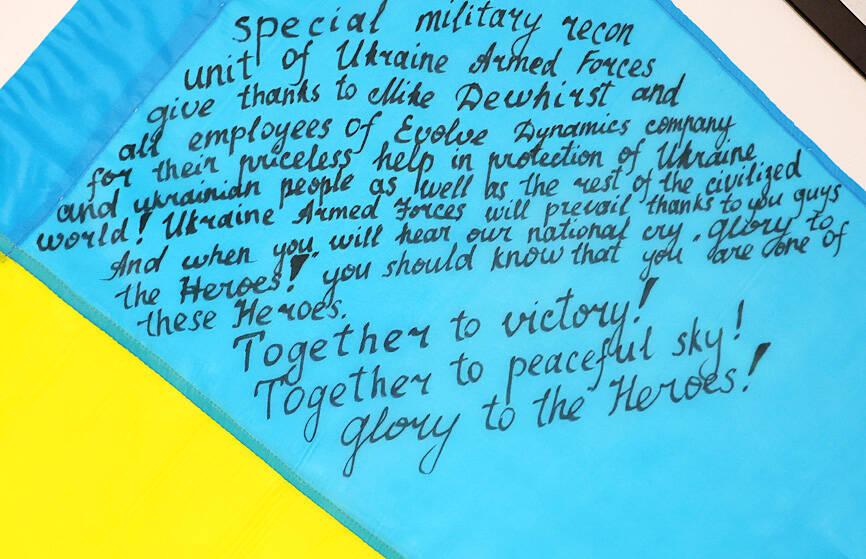 special military recon
unit of Ukraine Armed Forces
give thanks to Mike Dewhirst and
all employees of Evolve Dynamics company
for their priceless help in protection of Ukraine
and ukrainian people as well as the rest of the civilized
world! Ukraine Armed Forces will prevail thanks to you guys
And when you will hear our national cry "glory to
the Heroes!" you should know that you are one of
these Heroes.
Together to victory!
Together to peaceful sky!
glory to the Heroes!